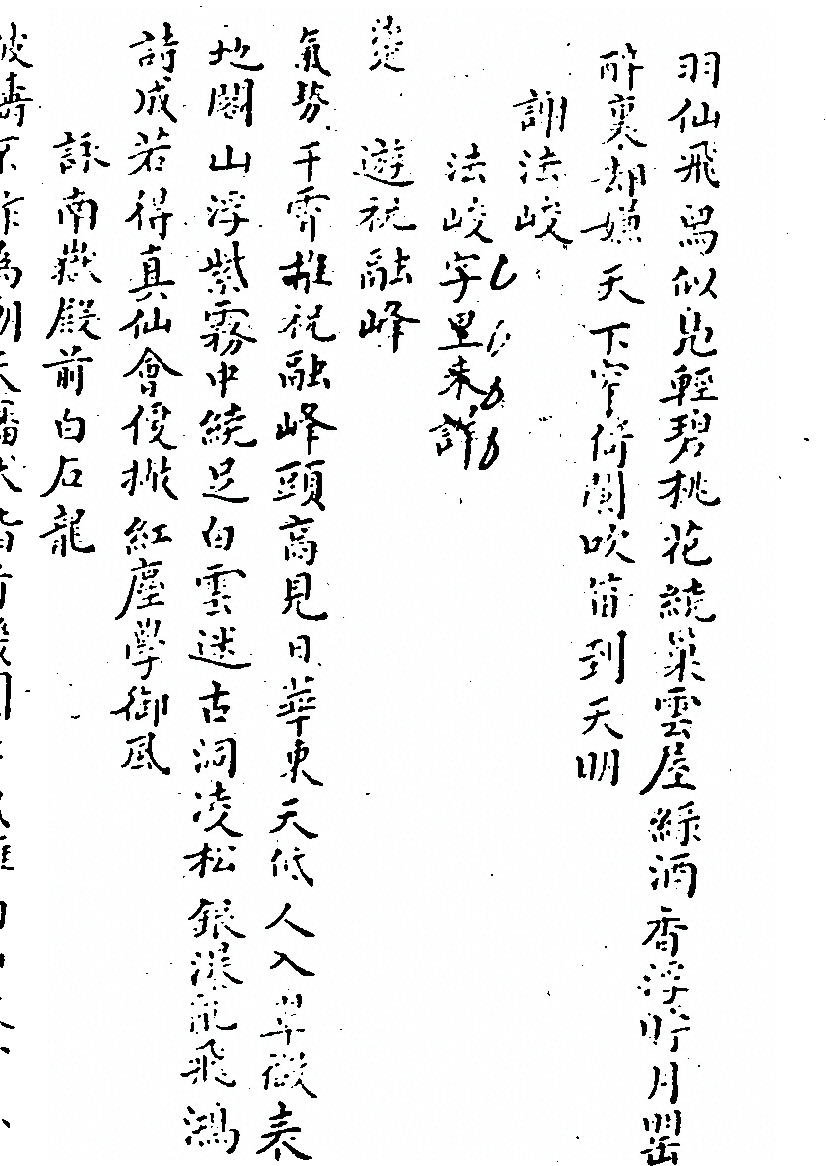 羽仙飛舄似鳧輕碧桃花繞巢雲屋綠酒香浮貯月罌
醉裏却嫌天下窄倚闌吹笛到天明
謝法崚
法崚字里未詳
遊祝融峰
氣勢干霄推祝融峰頭高見日華東天低人入翠微表
地闊山浮紫霧中繞足白雲迷古洞凌松銀瀑亂飛鴻
詩成若得真仙會便擬紅塵學御風
詠南嶽殿前白石龍